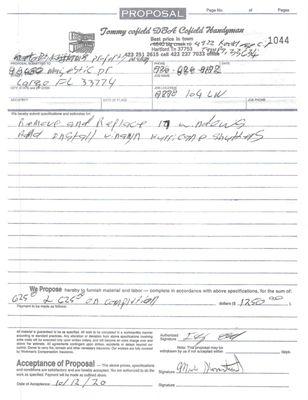 PROPOSAL
Page No. of Pages
Tommy cofield DBA Cofield Handyman
Best price in town
1044
Hartford TN 37753
423 253 2615 cell 423 237 7035
PROPOSAL SUBMITTED TO
PHONE
DATE
majestic dr
Largo FL 33774
JOB NAME
JOB LOCATION
ARCHITECT
DATE OF PLANS
JOB PHONE
We hereby submit specifications and estimates for:
Remove and Replace windows
and install hurricane shutters
We Propose hereby to furnish material and labor — complete in accordance with above specifications, for the sum of:
625 & 625 on completion
dollars ($ 1250 00 )
Payment to be made as follows:
All material is guaranteed to be as specified. All work to be completed in a workmanlike manner according to standard practices. Any alteration or deviation from above specifications involving extra costs will be executed only upon written orders, and will become an extra charge over and above the estimate. All agreements contingent upon strikes, accidents or delays beyond our control. Owner to carry fire, tornado and other necessary insurance. Our workers are fully covered by Workmen's Compensation Insurance.
Authorized Signature
Note: This proposal may be withdrawn by us if not accepted within days.
Acceptance of Proposal — The above prices, specifications and conditions are satisfactory and are hereby accepted. You are authorized to do the work as specified. Payment will be made as outlined above.
Signature
Date of Acceptance: 10/12/20
Signature